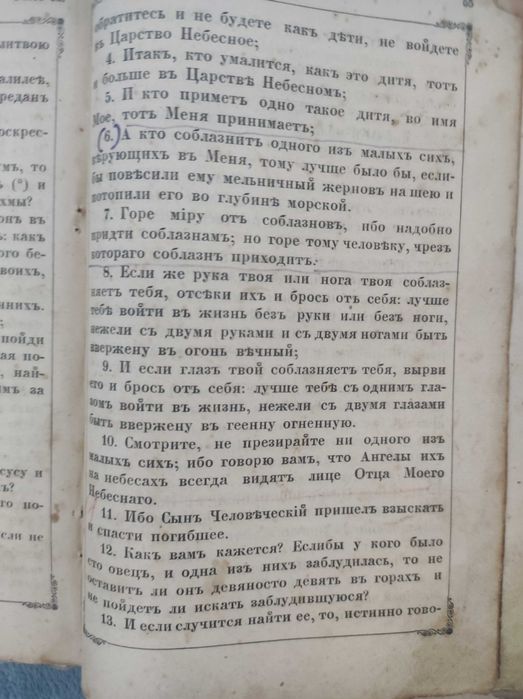 65
литвою
алилеѣ,
редавъ
оскрес-
умъ, то
ъ (*) и
хмы?
онъ въ
ъ: какъ
ого бе-
воихъ,
нихъ.
пойди
ая по-
, най-
имъ за
сусу и
ъ?
го по-
сли не
обратитесь и не будете какъ дѣти, не войдете
въ Царство Небесное;
4. Итакъ, кто умалится, какъ это дитя, тотъ
и больше въ Царствѣ Небесномъ;
5. И кто приметъ одно такое дитя, во имя
Мое, тотъ Меня принимаетъ;
(6.) А кто соблазнитъ одного изъ малыхъ сихъ,
вѣрующихъ въ Меня, тому лучше было бы, если-
бы повѣсили ему мельничный жерновъ на шею и
потопили его во глубинѣ морской.
7. Горе міру отъ соблазновъ, ибо надобно
придти соблазнамъ; но горе тому человѣку, чрезъ
котораго соблазнъ приходитъ.
8. Если же рука твоя или нога твоя соблаз-
няетъ тебя, отсѣки ихъ и брось отъ себя: лучше
тебѣ войти въ жизнь безъ руки или безъ ноги,
нежели съ двумя руками и съ двумя ногами быть
ввержену въ огонь вѣчный;
9. И если глазъ твой соблазняетъ тебя, вырви
его и брось отъ себя: лучше тебѣ съ однимъ гла-
зомъ войти въ жизнь, нежели съ двумя глазами
быть ввержену въ геенну огненную.
10. Смотрите, не презирайте ни одного изъ
малыхъ сихъ; ибо говорю вамъ, что Ангелы ихъ
на небесахъ всегда видятъ лице Отца Моего
Небеснаго.
11. Ибо Сынъ Человѣческій пришелъ взыскать
и спасти погибшее.
12. Какъ вамъ кажется? Еслибы у кого было
сто овецъ, и одна изъ нихъ заблудилась, то не
оставитъ ли онъ девяносто девять въ горахъ и
не пойдетъ ли искать заблудившуюся?
13. И если случится найти ее, то, истинно гово-